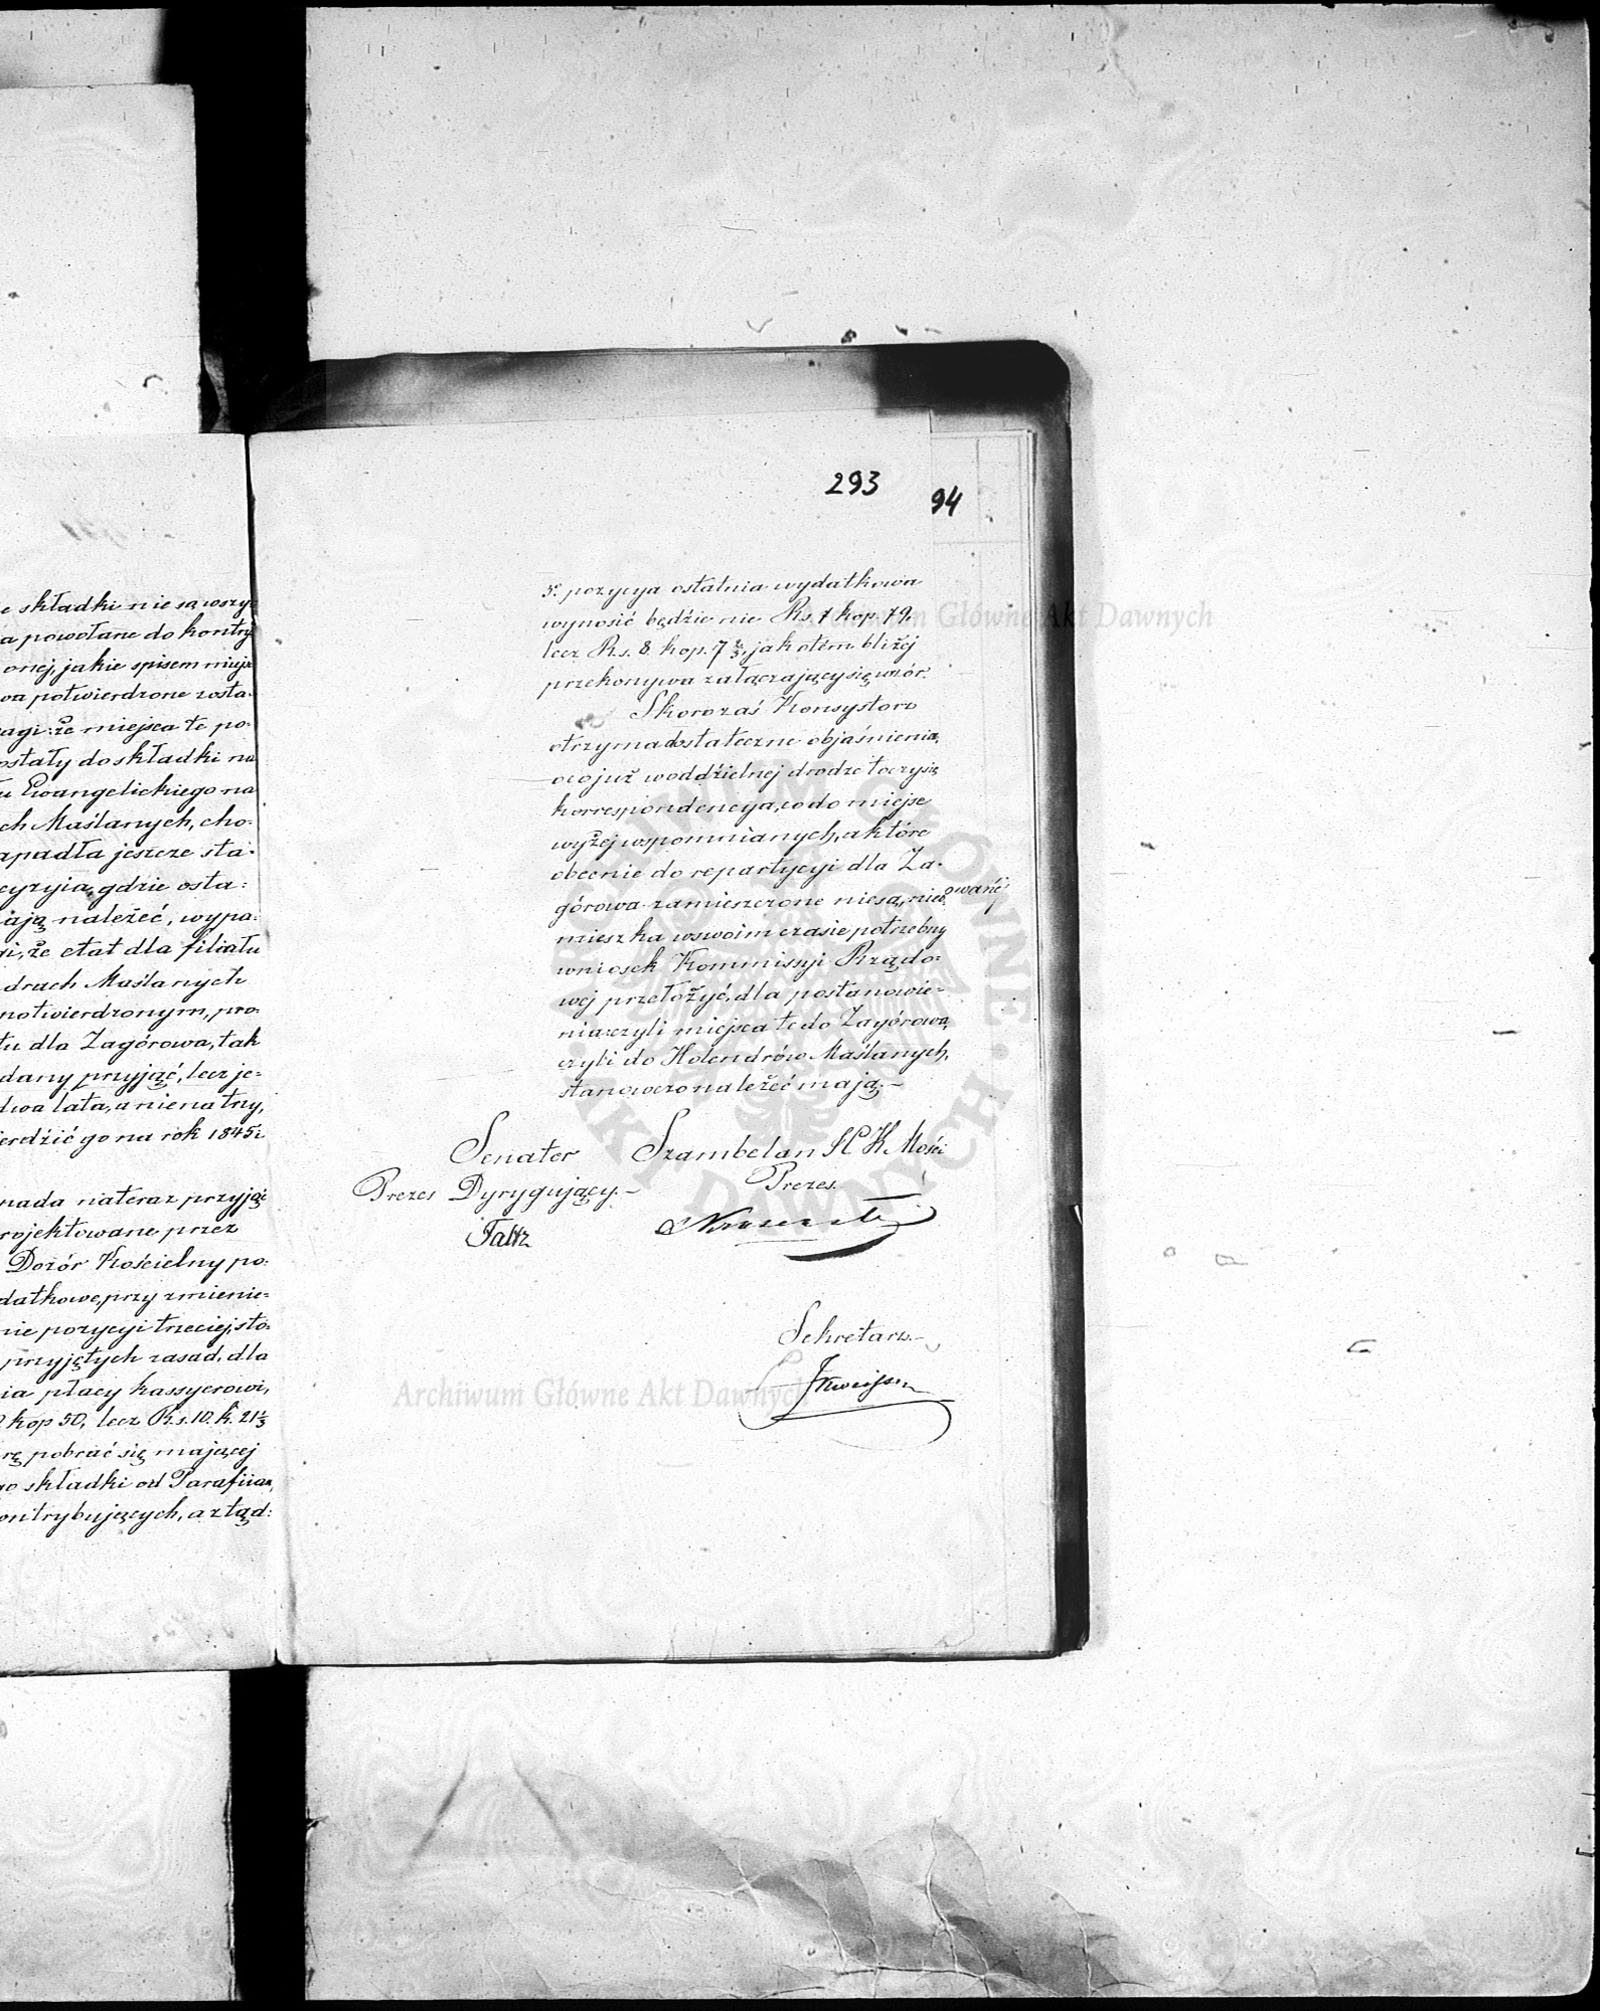 e składki nie są wszy
a powołane do kontry
onej, jakie spisem miejs
wa potwierdzone zosta-
agi: że miejsca te po-
ostały do składki na
u Ewangelickiego na
ch Maślanych, cho-
apadła jeszcze sta-
cyzyia, gdzie osta-
iają należeć, wypa-
gi, że etat dla filiału
drach Maślanych
potwierdzonym, pro-
tu dla Zagórowa, tak
dany przyjąć, lecz je-
dwa lata, a nie na trzy,
ierdzić go na rok 1845/
nada nateraz przyjąć
rojektowane przez
Dozór Kościelny po-
datkowe, przy zmienie-
nie pozycyi trzeciej, sto-
przyjętych zasad, dla
ia płacy kassyerowi,
kop 50, lecz R.s. 10. k. 21⅓
rę pobrać się mającej
go składki od Parafiian,
ontrybujących, a ztąd:
293
94
5. pozycya ostatnia wydatkowa
wynosić będzie nie Rs. 7 kop. 79.
lecz R.s. 8. kop. 7⅔, jak o tém bliżej
przekonywa załączający się wzór.
Skoro zaś Konsystorz
otrzyma dostateczne objaśnienia,
o co już w oddzielnej drodze toczy się
korrespondencya, co do miejsc
wyżej wspomnianych, a które
obecnie do repartycyi dla Za-
górowa zamieszczone nie są, nieo-
mieszka w swoim czasie potrzebny
wniosek Kommissyi Rządo-
wej przełożyć, dla postanowie-
nia: czyli miejsca te do Zagórowa,
czyli do Holendrów Maślanych,
stanowczo należeć mają.—
Senator Szambelan J C K Mości
Prezes Dyrygujący.— Prezes
Sekretarz.—
Archiwum Główne Akt Dawnych
Archiwum Główne Akt Dawnych
ARCHIWUM GŁÓWNE AKT DAWNYCH